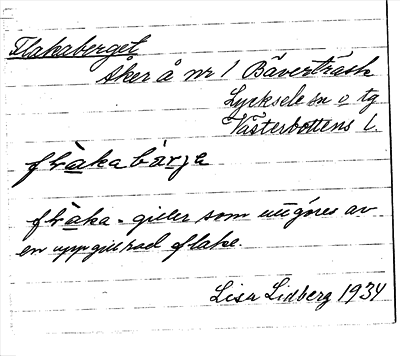 Flakaberget
Åker å nr 1 Bäverträsk
Lycksele sn o tg
Västerbottens l.
flakabärje
flaka - giller som utgöres av
en uppgillrad flake.
Lisa Lidberg 1934